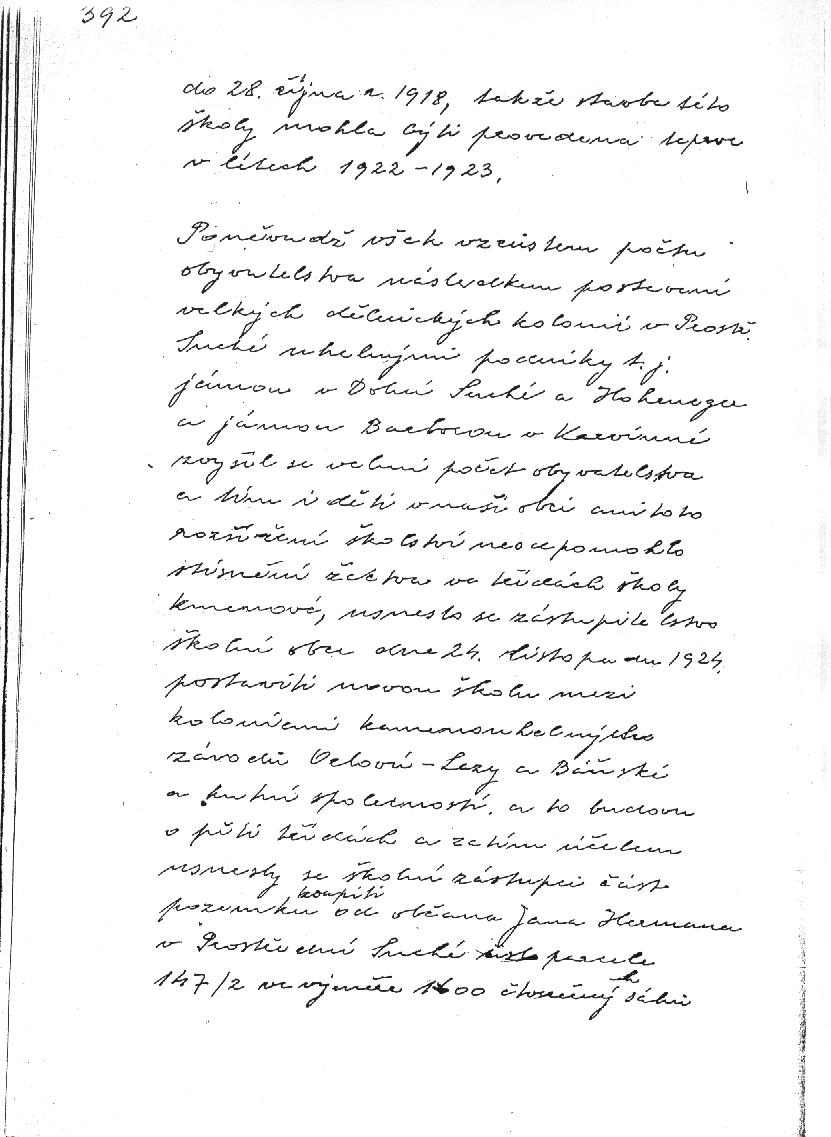 392
do 28. října r. 1918, takže stavba této
školy mohla býti provedena teprve
v létech 1922-1923.
Poněvadž však vzrůstem počtu
obyvatelstva následkem postavení
velkých dělnických kolonií v Prostř.
Suché uhelnými podniky t. j.
jámou v Dolní Suché a Hohenegger
a jámou Barborou v Karvinné
zvýšil se velmi počet obyvatelstva
a tím i dětí v naší obci ani toto
rozšíření školství neodpomohlo
stísnění žactva ve třídách školy
kmenové, usneslo se zástupitelstvo
školní obce dne 24. listopadu 1924.
postaviti novou školu mezi
koloniemi kamenouhelných
závodů Orlová-Lazy a Báňské
a hutní společnosti. a to budovu
o pěti třídách a za tím účelem
usnesly se školní zástupci část
pozemku koupiti od občana Jana Hermana
v Prostřední Suché parcele
147/2 ve výměře 1600 čtverečných sáhů